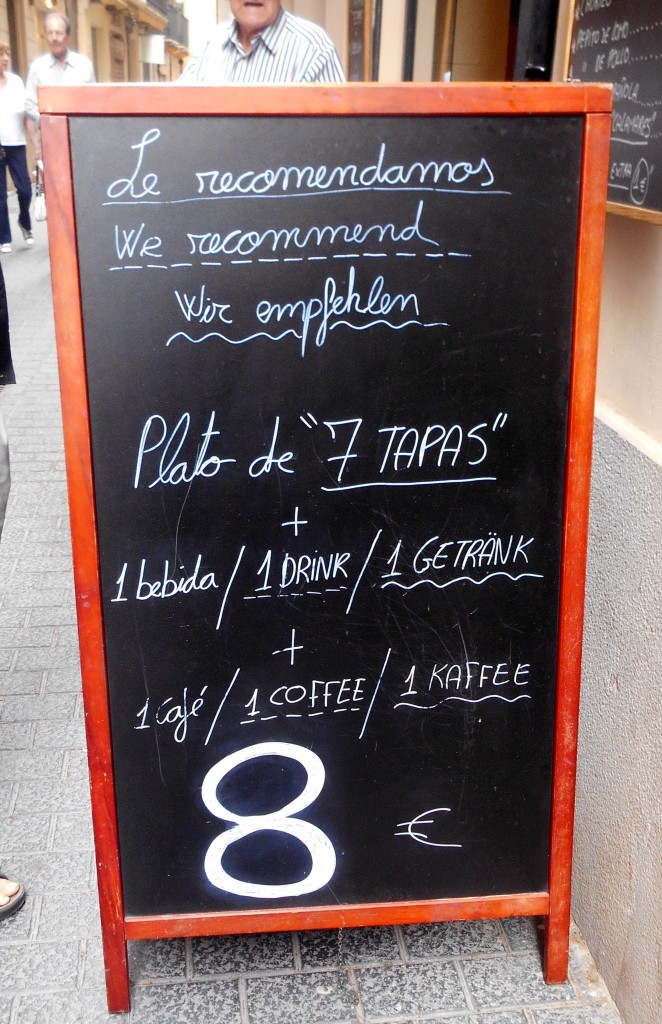 Le recomendamos
We recommend
Wir empfehlen
Plato de "7 TAPAS"
+
1 bebida / 1 DRINK / 1 GETRÄNK
+
1 Café / 1 COFFEE / 1 KAFFEE
8 €
PEPITO DE LOMO
" DE POLLO
CALAMARES"
EXTRA 1€